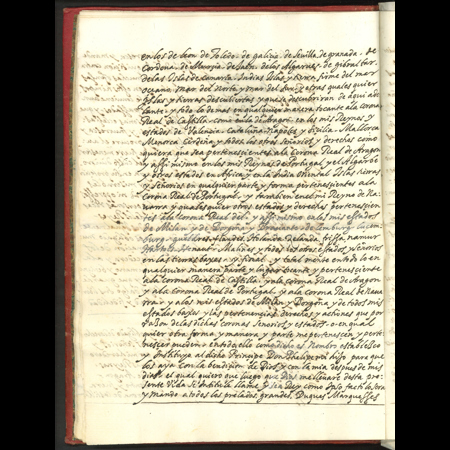 en los de leon de Toledo de galicia de Sevilla de granada. de
Cordoua. de Murcia. de Jaen. de los Algarues. de gibraltar.
de las Islas de canaria. Indias Islas, y tierra firme del mar
oceano, mar del Norte y mar del Sur, y otras quales quier
Islas, y tierras descubiertas, y que se descubriran de aqui ade
lante, y todo lo demas en qualquier manera tocante ala corona
Real de Castilla, como en la de Aragon. en los mis Reynos y
estados. de Valencia. Cataluña. Napoles. y Sicilia. Mallorca
Menorca. Cerdeña, y todos los otros señorios, y derechos como
quiera que sea pertenecientes. ala corona Real de Aragon
y assi mismo en los mis Reynos de Portugal. y el Algarbe
y otros estados en Africa, y en la India Oriental. Islas tierras
y Señorios en qualquier parte, y forma pertenecientes ala
corona Real de Portugal. y tambien en el mi Reyno de Na-
uarra y quales quier otros estados y derechos pertenecien
tes ala corona Real del. y assi mismo en los mis estados
de Milan y de Borgoña y Brauante de Limburg Lucem
burg. gueldres. flandes. Holanda. Zelanda. frissa, namur
Malinas y todos los otros estados, y Señorios
en las tierras baxas. y final. y total mente en todo lo en
qualquier manera parte y lugar tocante y perteneciente
ala corona Real de Castilla. y ala corona Real de Aragon
y ala corona Real de Portugal y ala corona Real de Naua
rra. y alos mis estados de Milan y Borgoña, y de todos mis
estados baxos y las pertenencias. derechos y actiones que por
razon de las dichas coronas Señorios, y estados. o en qual
quier otra forma, y manera, y parte me pertenecen, y perte-
necer pueden: en todo ello como dicho es. Nombro establesco
y Instituyo al dicho Principe Don Phelipe mi hijo para que
los aya con la bendicion de Dios, y con la mia despues de mis
dias. el qual quiero que luego que Dios me lleuare desta pre
sente Vida se Intitule llame, y sea Rey como ipso facto lo sera
y mando a todos los prelados, grandes, Duques Marqueses